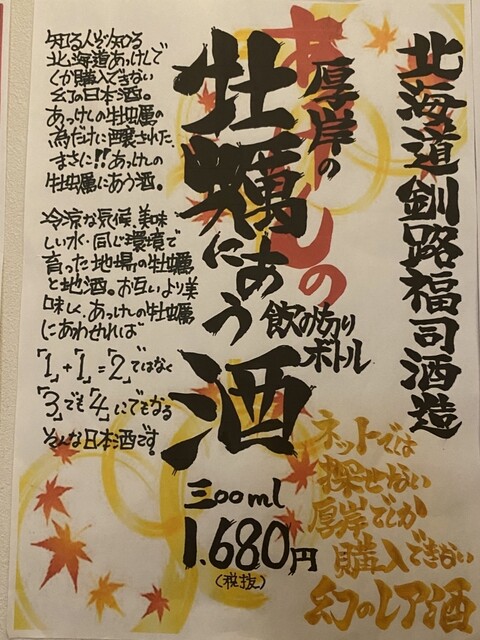 北海道釧路福司酒造
あっけしの
厚岸の
牡蠣にあう
酒
飲み切り
ボトル
三〇〇ml
1.680円
(税抜)
知る人ぞ知る
北海道あっけしで
しか購入できない
幻の日本酒。
あっけしの牡蠣の
為だけに醸された、
まさに!!あっけしの
牡蠣にあう酒。
冷涼な気候、美味
しい水・同じ環境で
育った地場の牡蠣
と地酒。お互いより美
味しく、あっけしの牡蠣
にあわせれば
「1」+「1」=「2」ではなく
「3」でも「4」にでもなる
そんな日本酒です。
ネットでは
探せない
厚岸でしか
購入できない
幻のレア酒